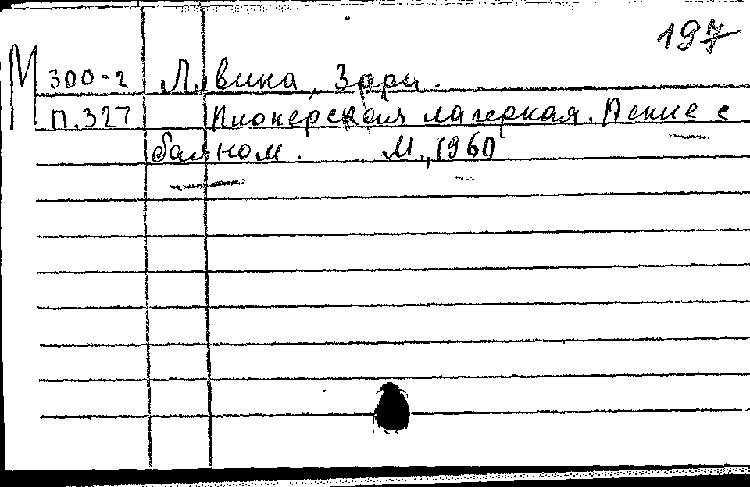 197
М 300-2 Левина, Зара.
П.327 Пионерская лагерная. Пение с
баяном. М., 1960